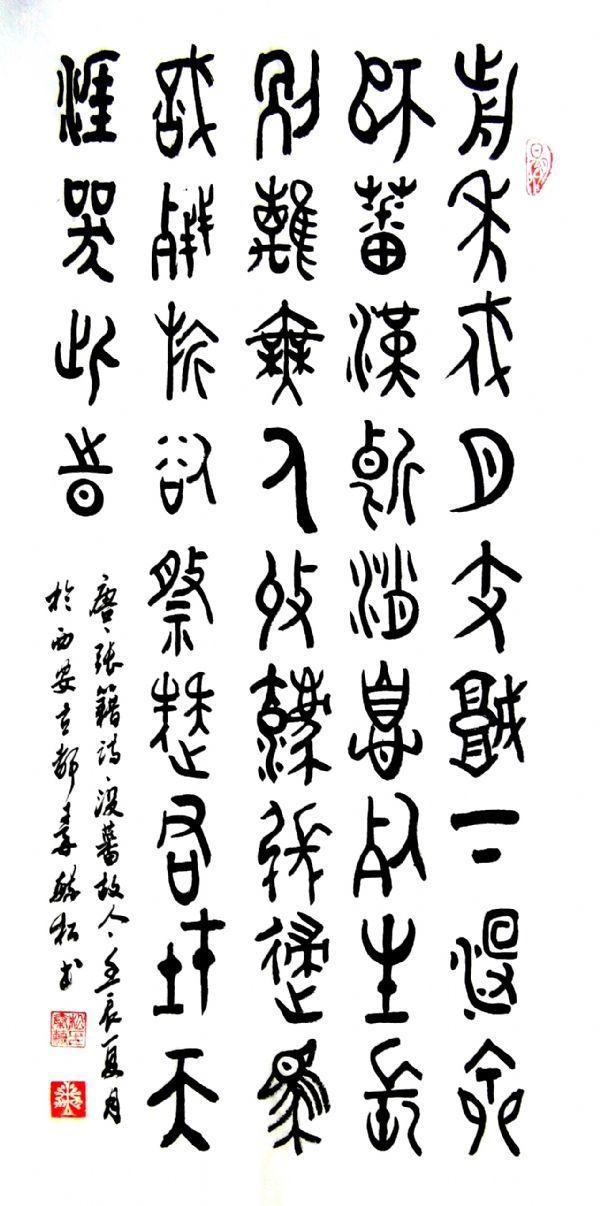 前年戍月支城下沒全
師蕃漢斷消息死生長
別離無人收廢帳歸馬
識殘旗欲祭疑君在天
涯哭此時
唐、張籍詩沒蕃故人、壬辰夏月
於西安古都 松書